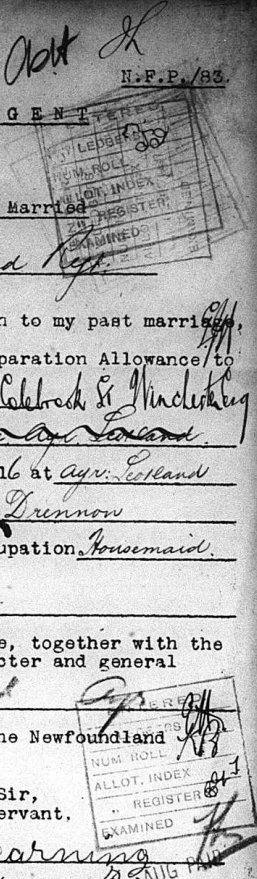 N.F.P./83.
G E N T
ENTERED
LEDGERS
NUM. ROLL
ALLOT. INDEX
" REGISTER
EXAMINED
Married
n to my past marriage,
paration Allowance to
Colebrook St Winchester
Ayr Scotland.
16 at Ayr: Scotland
Drennon
upation Housemaid.
e, together with the
cter and general
Ayr
ERED
LEDGERS
he Newfoundland
NUM ROLL
ALLOT. INDEX
Sir,
" REGISTER
ervant,
EXAMINED
earning
AUG PAID